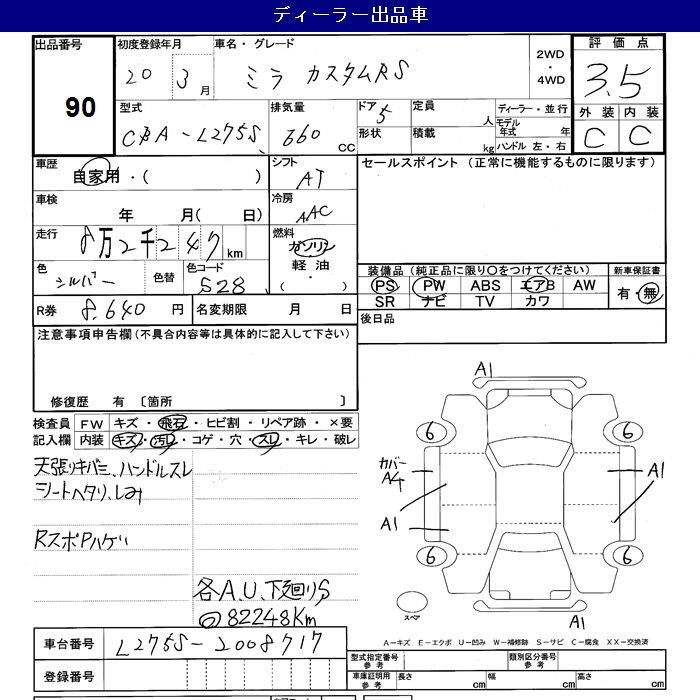 ディーラー出品車
出品番号 90
初度登録年月 20 3月
車名・グレード ミラ カスタムRS
2WD・4WD
評価点 3.5
外装 C 内装 C
型式 CBA-L275S
排気量 660 CC
ドア 5
形状
定員 人
積載 kg
ディーラー・並行
モデル年式 年
ハンドル 左・右
車歴 自家用・( )
シフト AT
セールスポイント (正常に機能するものに限ります)
車検 年 月( 日)
冷房 AAC
走行 8万2千247 km
燃料 ガソリン 軽油 ( ・ )
色 シルバー 色替 色コード S28
装備品 (純正品に限り○をつけてください)
新車保証書 有・無
PS PW ABS エアB AW
SR ナビ TV カワ
R券 8,640 円 名変期限 月 日
後日品
注意事項申告欄(不具合内容等は具体的に記入して下さい)
修復歴 有 〔箇所 〕
検査員記入欄
FW キズ・飛石・ヒビ割・リペア跡・×要
内装 キズ・汚レ・コゲ・穴・スレ・キレ・破レ
天張りキバミ、ハンドルスレ
シートヘタリ、しみ
RスポPハゲ
各A.U、下廻りS
82248Km
A1
6 6
カバーA4 A1
A1
6 6
スペア
A1
A-キズ E-エクボ U-凹み W-補修跡 S-サビ C-腐食 XX-交換済
車台番号 L275S-2008717
登録番号
型式指定番号 参考 類別区分番号 参考
車庫証明用 参考 長さ cm 幅 cm 高さ cm